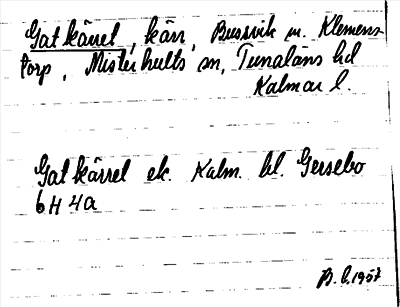 Gatkärret, kärr, Bussvik u. Klemens-
torp, Misterhults sn, Tunaläns hd
Kalmar l.
Gatkärret ek. Kalm. bl. Gersebo
6H 4a
B.l.1957